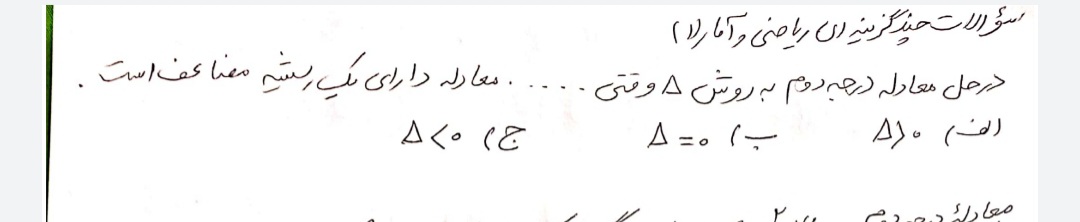 سؤالات چندگزینه ای ریاضی و آمار (۱)
در حل معادله درجه دوم به روش Δ وقتی ..... معادله دارای یک ریشه مضاعف است.
الف) Δ>0 ب) Δ=0 ج) Δ<0
معادلهٔ درجه دوم